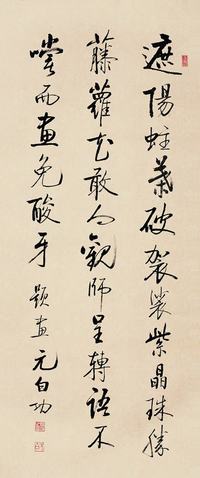 遮陽蛀葉破袈裟紫晶珠勝
藤蘿花敢向觀師呈轉語不
嚐而畫免酸牙 題畫 元白功